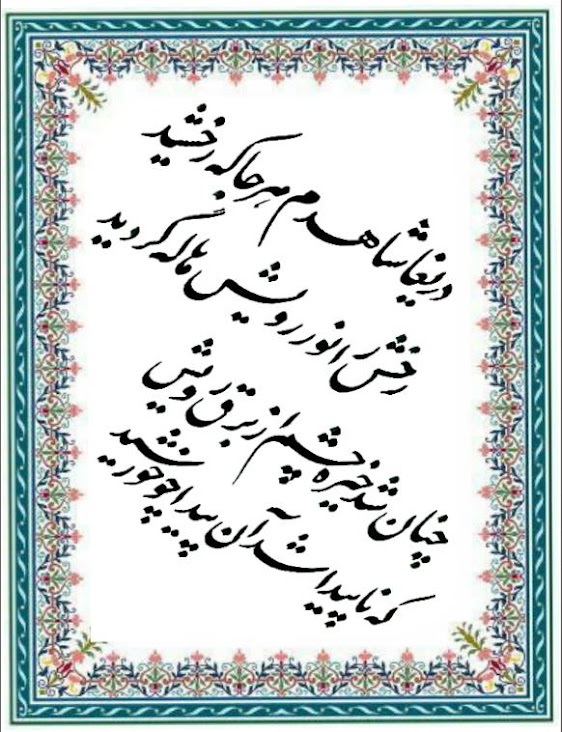 دریغا شاهدم هر جا که رخشید
رخش را نور رویش هاله گردید
چنان شد خیره چشم از برق رویش
که ناپیدا شد آن پیدا چو خورشید